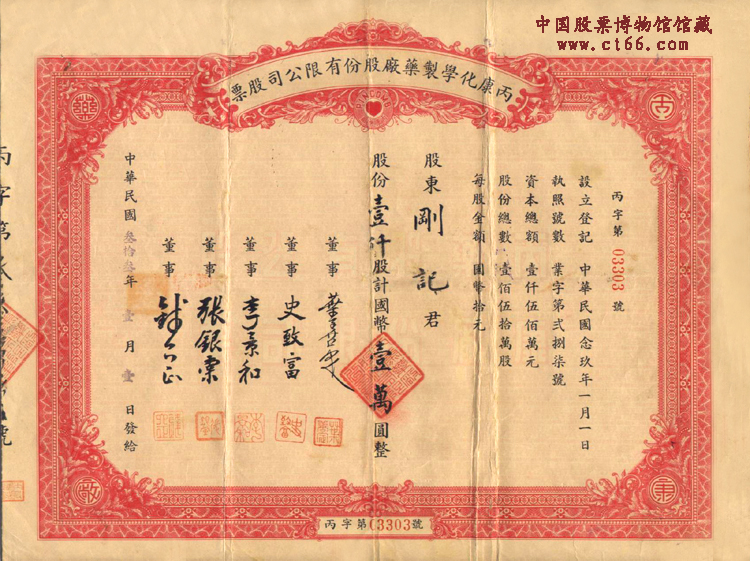 中国股票博物馆馆藏
www.ct66.com
丙康化學製藥廠股份有限公司股票
丙字第 03303 號
設立登記 中華民國念玖年一月一日
執照號數 業字第弍捌柒號
資本總額 壹仟伍佰萬元
股份總數 壹佰伍拾萬股
每股金額 國幣拾元
股東 剛記 君
股份壹仟股計國幣壹萬圓整
董事
董事 史致富
董事 李景和
董事 張銀棠
董事
中華民國叁拾叁年壹月壹日發給
丙字第03303號
丙字第
號